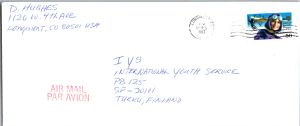 D. HUGHES
1120 W. 4TH AVE
LONGMONT, CO 80501 USA
IYS
INTERNATIONAL YOUTH SERVICE
PB 125
SF-20101
TURKU, FINLAND
AIR MAIL
PAR AVION